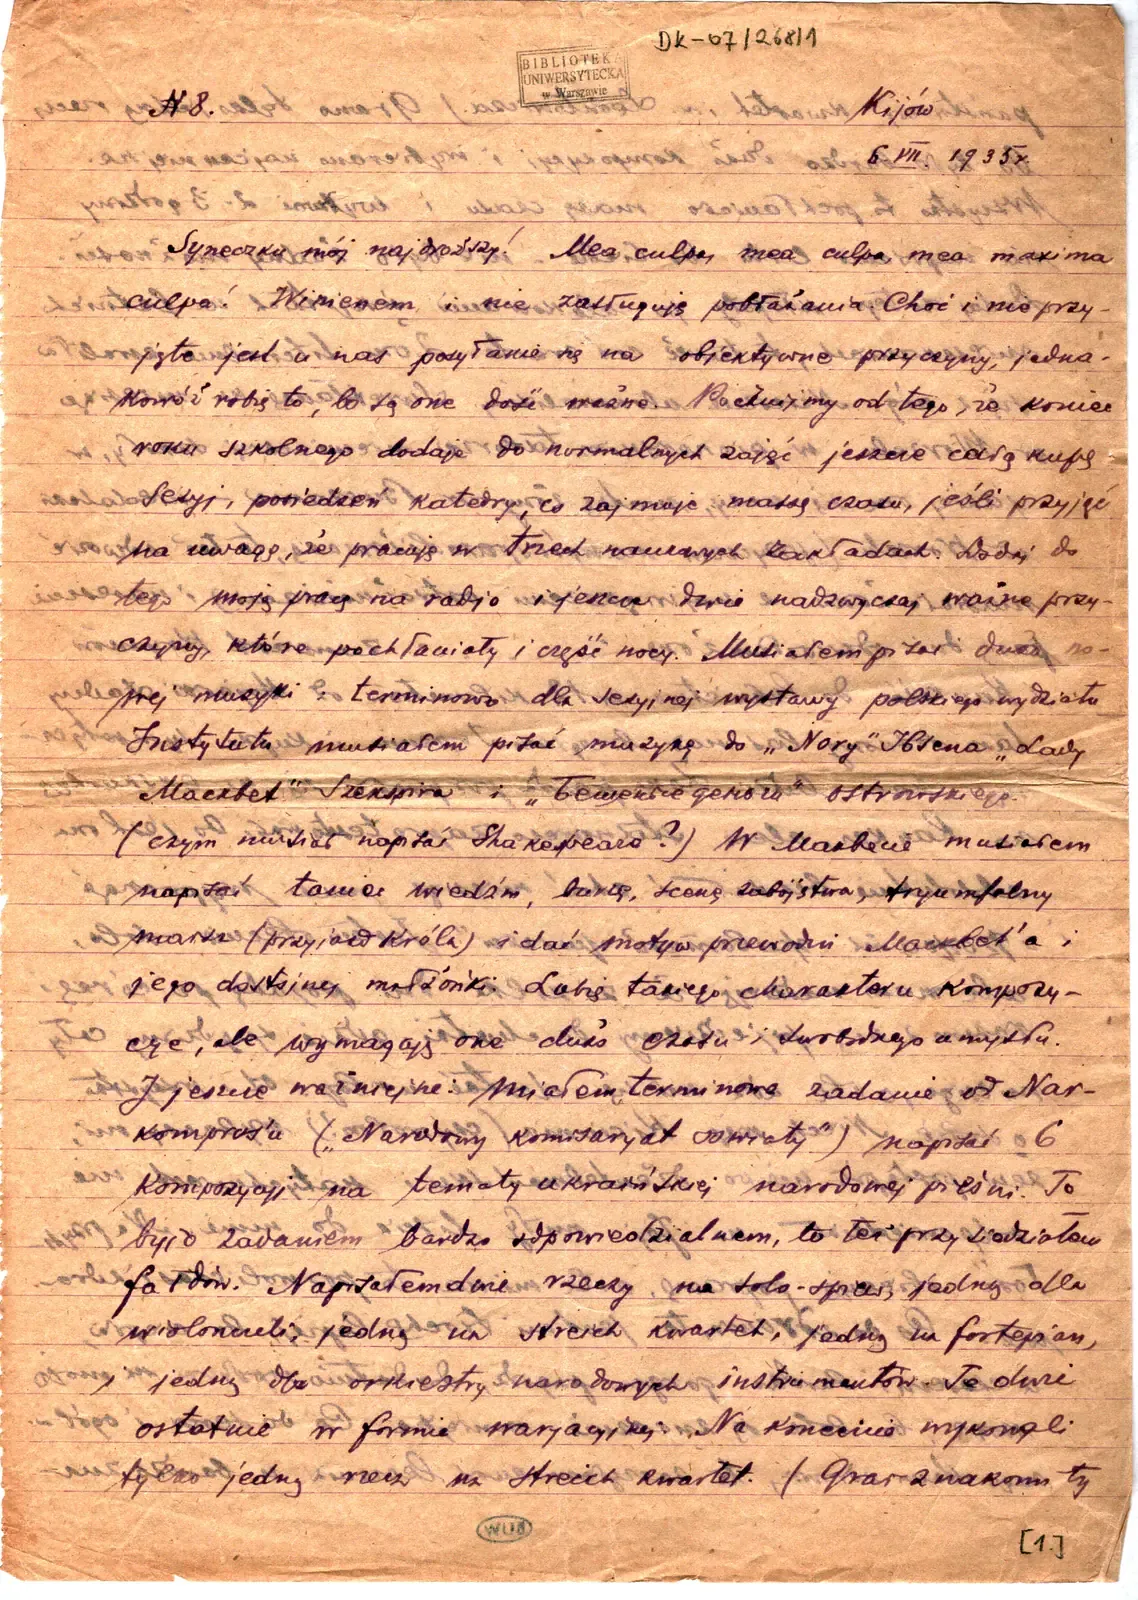 DK-07/268/1
BIBLIOTEKA
UNIWERSYTECKA
w Warszawie
N 8. Kijów
6 VII. 1935 r.
Syneczku mój najdroższy! Mea culpa, mea culpa, mea maxima
culpa! Winienem i nie zasługuję pobłażania. Choć i nie przy-
jęte jest u nas posyłanie się na objektywne przyczyny, jedna-
kowóż robię to, bo są one dość ważne. Pocznijmy od tego, że koniec
roku szkolnego dodaje do normalnych zajęć jeszcze całą kupę
sesyj, posiedzeń katedry, co zajmuje masę czasu, jeśli przyjąć
na uwagę, że pracuję w trzech naukowych zakładach. Dodaj do
tego moją pracę na radjo i jeszcze dwie nadzwyczaj ważne przy-
czyny, które pochłaniały i część nocy. Musiałem pisać dużo no-
wej muzyki i terminowo dla sesyjnej wystawy polskiego wydziału
Instytutu musiałem pisać muzykę do „Nory" Ibsena „Lady
Mackbet" Szekspira i ostrowskiego.
(czym musiał napisać Shakespeare?) W Macbecie musiałem
napisać taniec wiedźm, burzę, scenę zabójstwa, tryumfalny
marsz (przyjazd króla) i dać motyw przewodni Mackbet'a i
jego dostojnej małżonki. Lubię takiego charakteru kompozy-
cje, ale wymagają one dużo czasu i swobodnego umysłu.
I jeszcze ważniejsze: miałem terminowe zadanie od Nar-
kompros'u („Narodowy komisaryat oswiaty") napisać 6
kompozycyj na tematy ukraińskiej narodowej pieśni. To
było zadaniem bardzo odpowiedzialnem, to też przysiedziałem
fałdów. Napisałem dwie rzeczy na solo-śpiew, jedną dla
wiolonczeli, jedną na streich kwartet, jedną na fortepian,
i jedną dla orkiestry narodowych instrumentów. Te dwie
ostatnie w formie warjacyjnej. Na koncercie wykonali
tylko jedną rzecz na streich kwartet. (Grał znakomity
WUB
[1.]